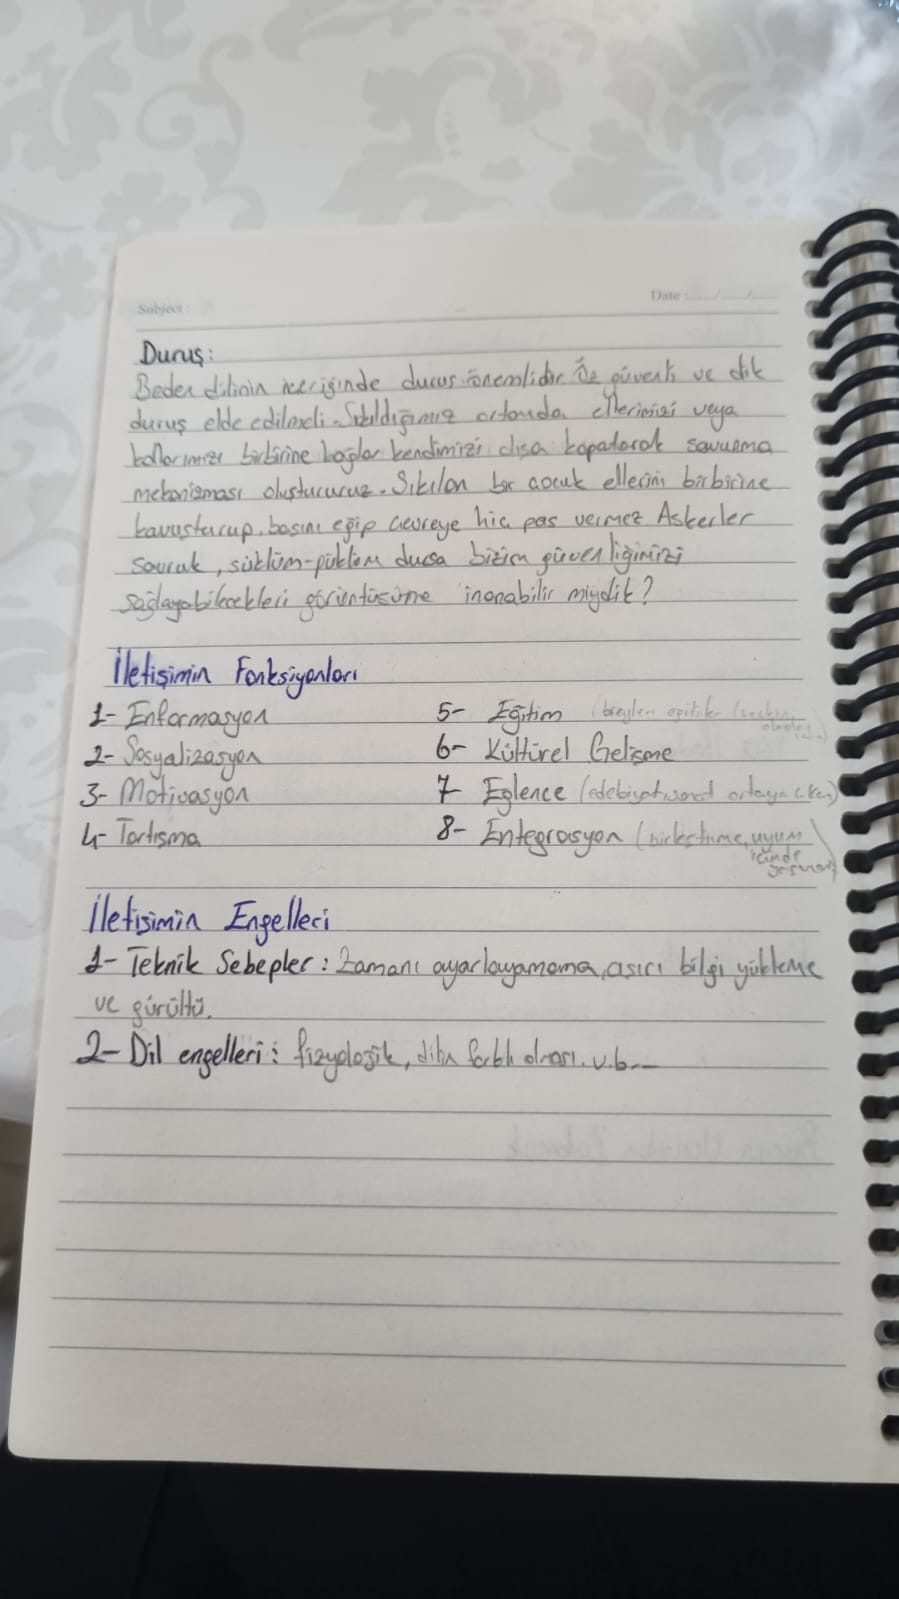 Subject :
Date :....../....../......
Duruş:
Beden dilinin içeriğinde duruş önemlidir Öz güvenli ve dik
duruş elde edilmeli. Sıkıldığımız ortamda ellerimizi veya
kollarımızı birbirine bağlar kendimizi dışa kapatarak savunma
mekanizması oluştururuz. Sıkılan bir çocuk ellerini birbirine
kavuşturup, başını eğip çevreye hiç pas vermez Askerler
savruk, süklüm-püklüm dursa bizim güvenliğimizi
sağlayabilecekleri görüntüsüne inanabilir miydik?
İletişimin Fonksiyonları
1- Enformasyon
2- Sosyalizasyon
3- Motivasyon
4- Tartışma
5- Eğitim
6- Kültürel Gelişme
7- Eğlence (edebiyat, sanat ortaya çıkan)
8- Entegrasyon (birleştirme, uyum
içinde
yaşamak)
İletişimin Engelleri
1- Teknik Sebepler: Zamanı ayarlayamama, aşırı bilgi yükleme
ve gürültü.
2- Dil engelleri: fizyolojik, dilin farklı olması. v.b.